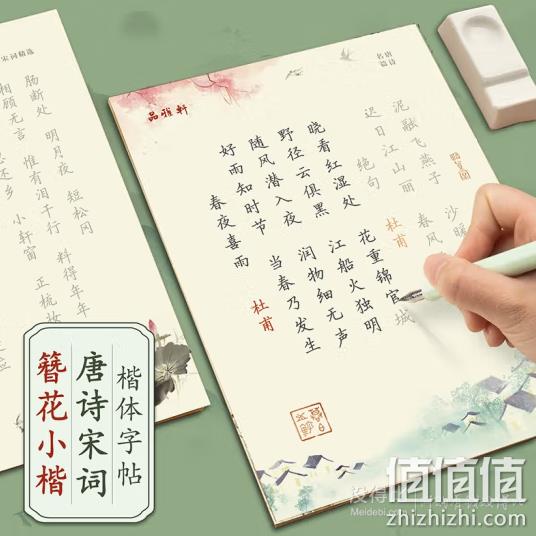 宋词精选
还乡 小轩窗 正梳妆
相顾无言 惟有泪千行 料得年年
肠断处 明月夜 短松冈
唐诗
名篇
品雅轩
春夜喜雨 杜甫
好雨知时节 当春乃发生
随风潜入夜 润物细无声
野径云俱黑 江船火独明
晓看红湿处 花重锦官城
绝句 杜甫
迟日江山丽 春风
泥融飞燕子 沙暖
楷体字帖
唐诗宋词
簪花小楷
没得
Meidebi.com
值值值
zhizhizhi.com